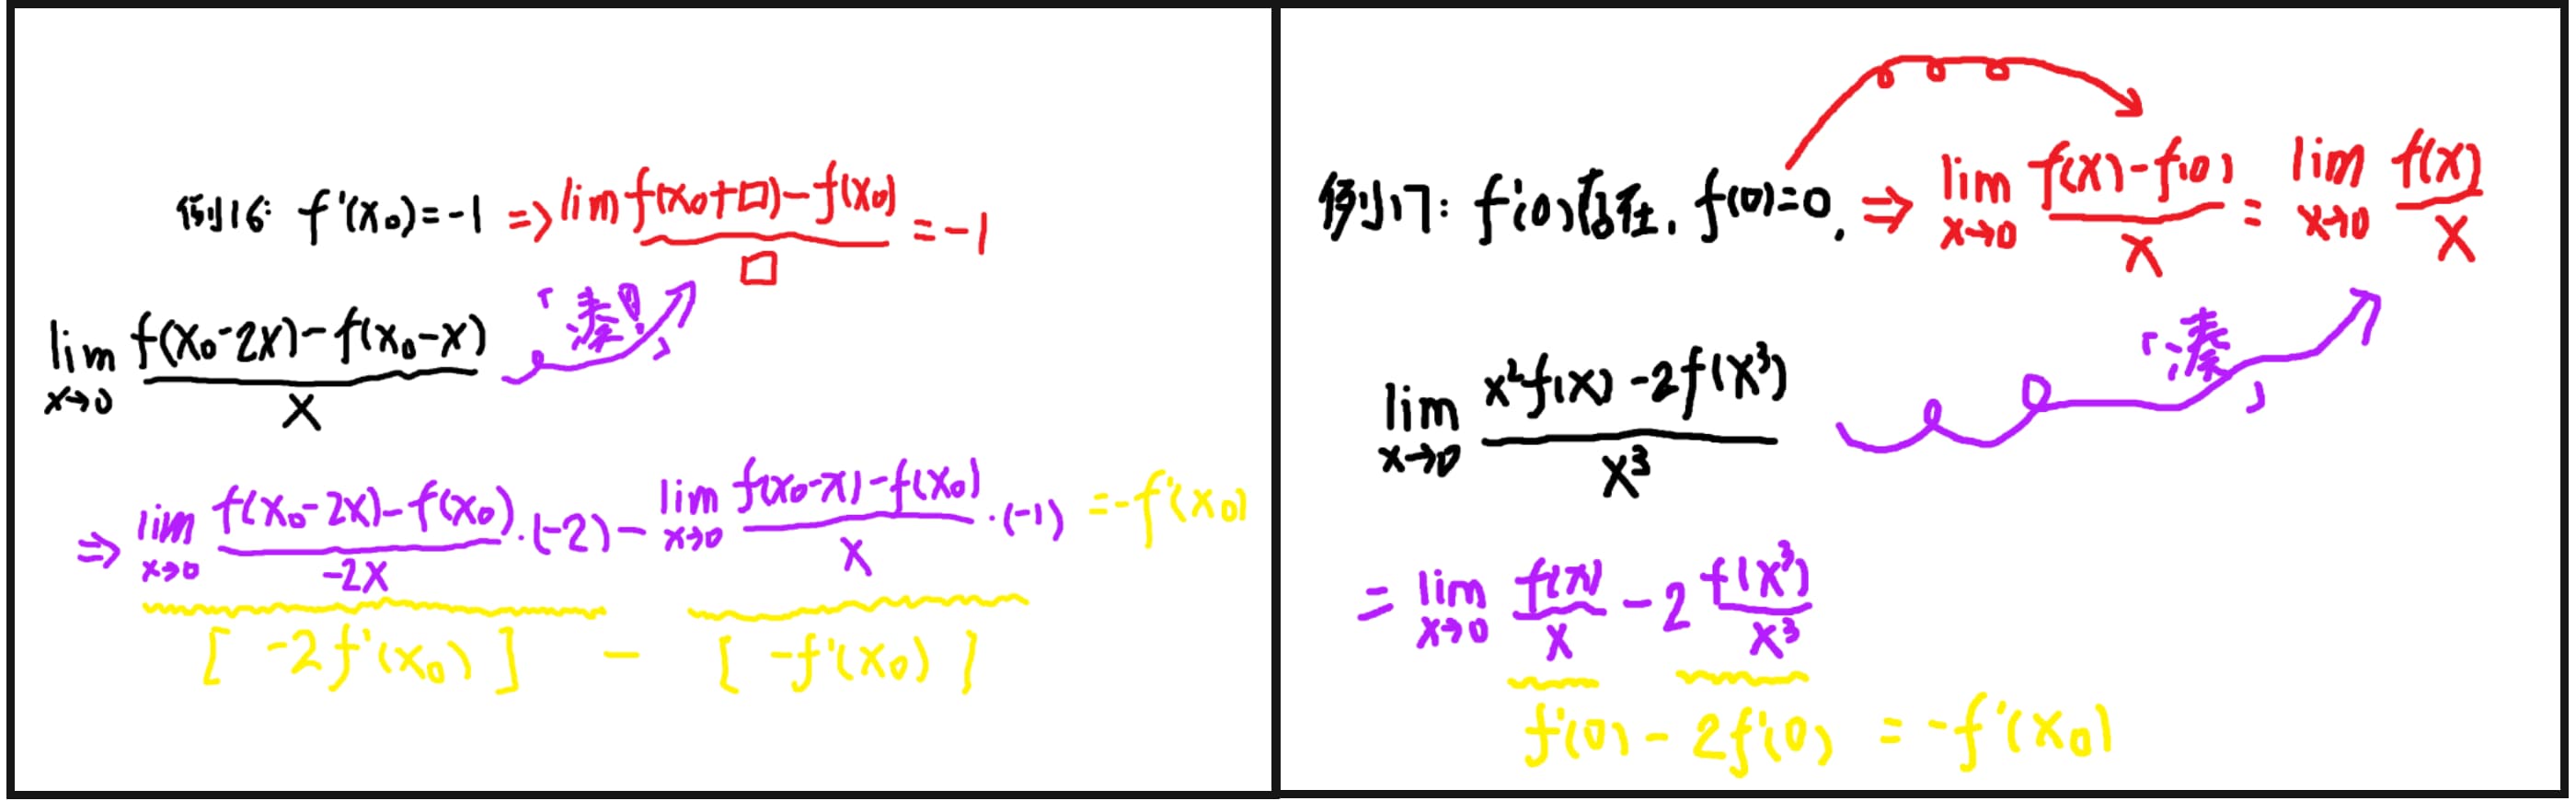 例16: f'(x₀)=-1 ⇒ lim f(x₀+□)-f(x₀) / □ = -1
「凑!」
lim x→0 f(x₀-2x)-f(x₀-x) / x
⇒ lim x→0 f(x₀-2x)-f(x₀) / -2x ·(-2) - lim x→0 f(x₀-x)-f(x₀) / x ·(-1) = -f'(x₀)
[ -2f'(x₀) ] - [ -f'(x₀) ]
例17: f'(0)存在, f(0)=0, ⇒ lim x→0 f(x)-f(0) / x = lim x→0 f(x) / x
「凑」
lim x→0 x²f(x)-2f(x³) / x³
= lim x→0 f(x) / x - 2 f(x³) / x³
f'(0) - 2f'(0) = -f'(x₀)